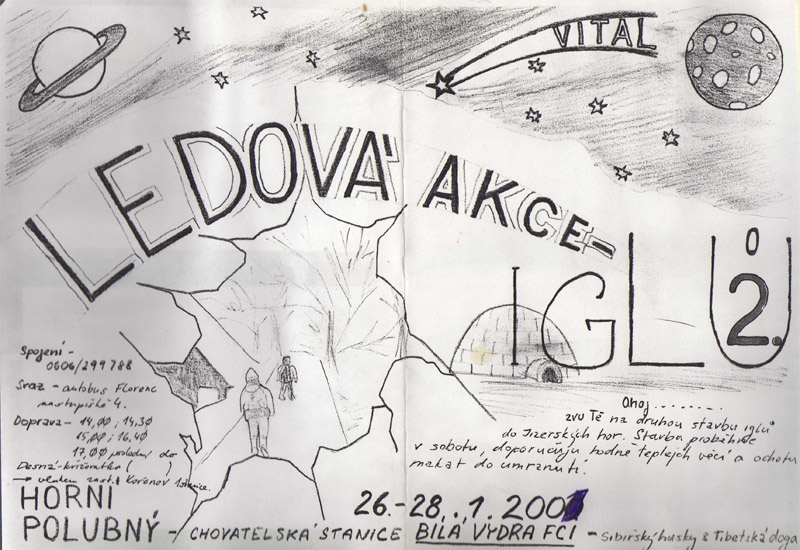 VITAL
LEDOVÁ AKCE -
IGLŮ
2.
Spojení -
0606/299788
Sraz - autobus Florenc
nástupiště 4.
Doprava - 14,00 ; 14,30
15,00 ; 16,40
17,00 poslední do
Desná-křižovatka ( )
→ vlakem zast. Kořenov 1stanice.
Ahoj ........
zvu Tě na druhou stavbu iglů
do Jizerských hor. Stavba proběhne
v sobotu, doporučuju hodně teplejch věcí a ochotu
makat do umrznutí.
HORNI
POLUBNÝ - CHOVATELSKÁ STANICE BÍLÁ VYDRA FCI - Sibiřský husky & Tibetská doga
26.-28. .1. 2001